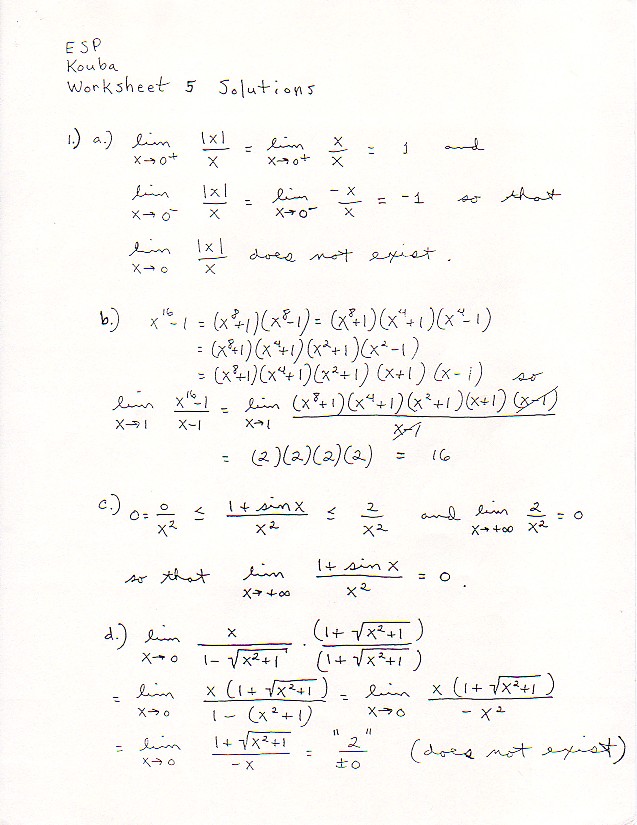 ESP
Kouba
Worksheet 5 Solutions
1.) a.) lim_{x→0⁺} |x|/x = lim_{x→0⁺} x/x = 1 and
lim_{x→0⁻} |x|/x = lim_{x→0⁻} -x/x = -1 so that
lim_{x→0} |x|/x does not exist.
b.) x¹⁶-1 = (x⁸+1)(x⁸-1) = (x⁸+1)(x⁴+1)(x⁴-1)
= (x⁸+1)(x⁴+1)(x²+1)(x²-1)
= (x⁸+1)(x⁴+1)(x²+1)(x+1)(x-1) so
lim_{x→1} (x¹⁶-1)/(x-1) = lim_{x→1} (x⁸+1)(x⁴+1)(x²+1)(x+1)(x-1)/(x-1)
= (2)(2)(2)(2) = 16
c.) 0 = 0/x² ≤ (1+sin x)/x² ≤ 2/x² and lim_{x→+∞} 2/x² = 0
so that lim_{x→+∞} (1+sin x)/x² = 0.
d.) lim_{x→0} x/(1-√(x²+1)) · (1+√(x²+1))/(1+√(x²+1))
= lim_{x→0} x(1+√(x²+1))/(1-(x²+1)) = lim_{x→0} x(1+√(x²+1))/(-x²)
= lim_{x→0} (1+√(x²+1))/(-x) = "2"/±0 (does not exist)